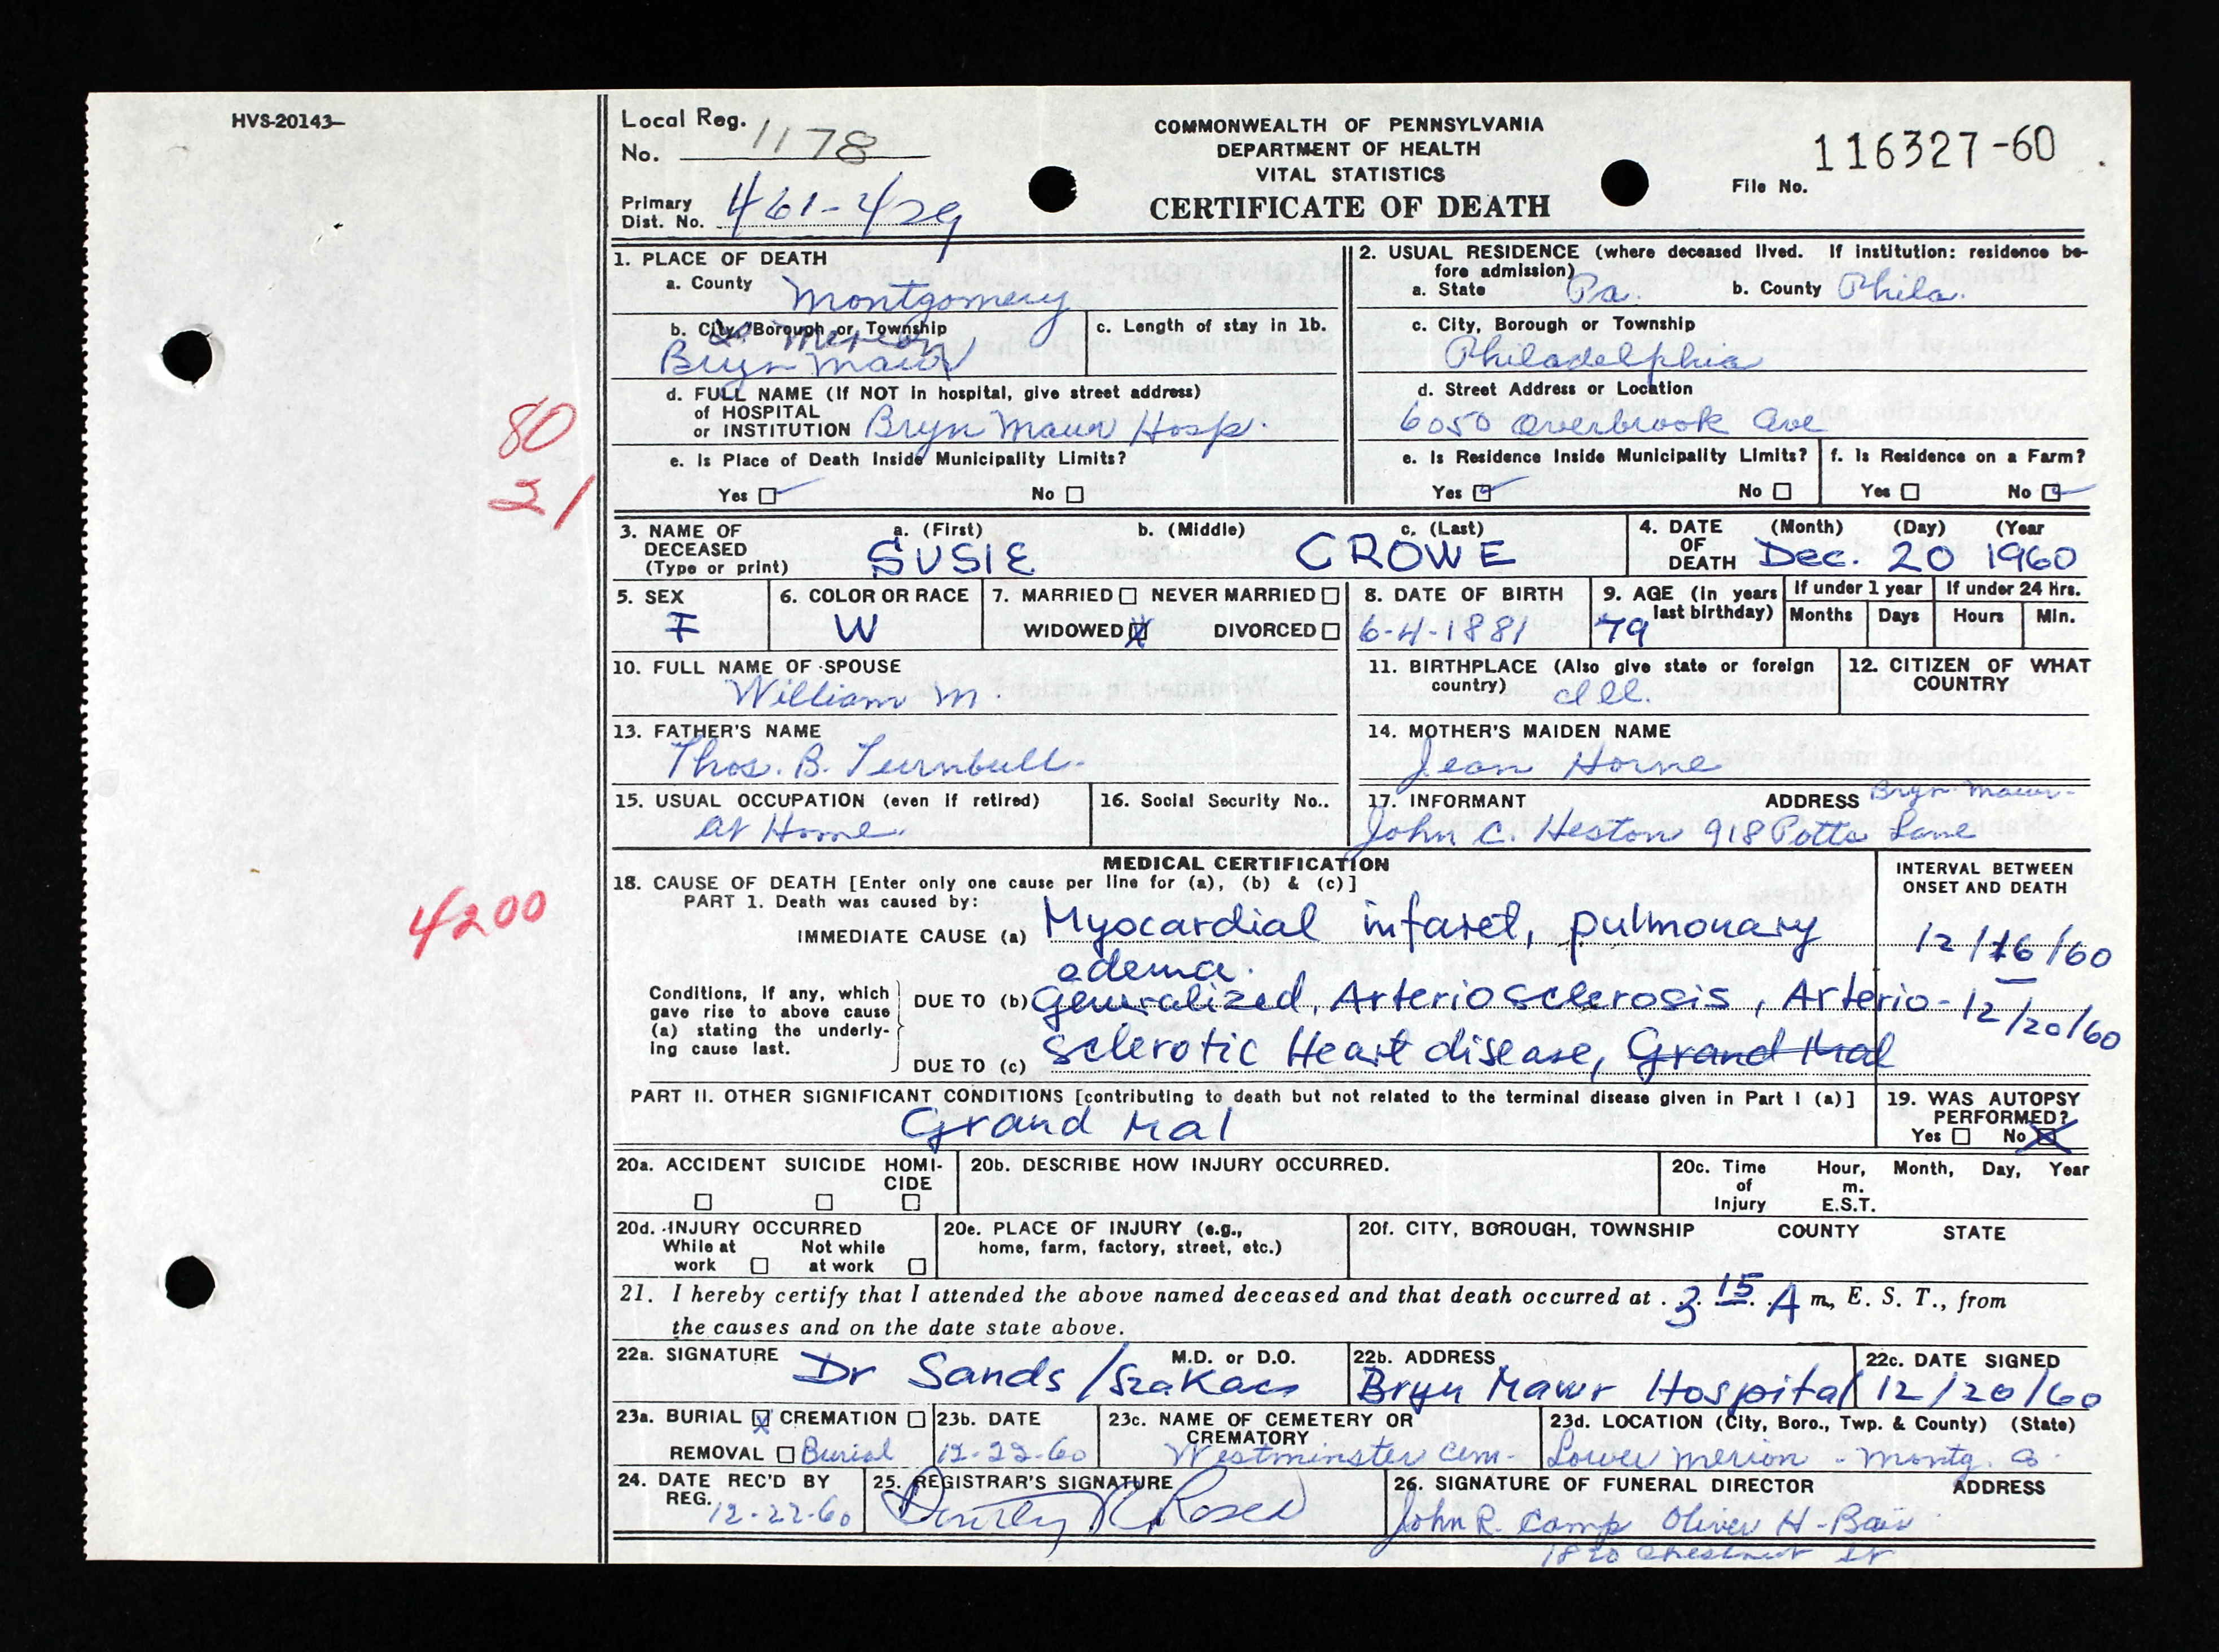 HVS-20143-
Local Reg.
No. 1178
COMMONWEALTH OF PENNSYLVANIA
DEPARTMENT OF HEALTH
VITAL STATISTICS
CERTIFICATE OF DEATH
116327-60
File No.
Primary
Dist. No. 461-429
1. PLACE OF DEATH
a. County Montgomery
b. City, Borough or Township
L. Merion
Bryn Mawr
c. Length of stay in 1b.
d. FULL NAME (If NOT in hospital, give street address)
of HOSPITAL
or INSTITUTION Bryn Mawr Hosp.
e. Is Place of Death Inside Municipality Limits?
Yes No
2. USUAL RESIDENCE (where deceased lived. If institution: residence be-
fore admission)
a. State Pa. b. County Phila.
c. City, Borough or Township
Philadelphia
d. Street Address or Location
6050 Overbrook Ave
e. Is Residence Inside Municipality Limits?
Yes No
f. Is Residence on a Farm?
Yes No
80
21
3. NAME OF
DECEASED
(Type or print)
a. (First) b. (Middle) c. (Last)
SUSIE CROWE
4. DATE
OF
DEATH
(Month) (Day) (Year
Dec. 20 1960
5. SEX
F
6. COLOR OR RACE
W
7. MARRIED NEVER MARRIED
WIDOWED X DIVORCED
8. DATE OF BIRTH
6-4-1881
9. AGE (In years
last birthday)
79
If under 1 year
Months Days
If under 24 hrs.
Hours Min.
10. FULL NAME OF SPOUSE
William M.
11. BIRTHPLACE (Also give state or foreign
country) Ill.
12. CITIZEN OF WHAT
COUNTRY
13. FATHER'S NAME
Thos. B. Turnbull.
14. MOTHER'S MAIDEN NAME
Jean Horne
15. USUAL OCCUPATION (even if retired)
at Home
16. Social Security No..
17. INFORMANT ADDRESS Bryn Mawr-
John C. Heston 918 Potts Lane
MEDICAL CERTIFICATION
18. CAUSE OF DEATH [Enter only one cause per line for (a), (b) & (c)]
PART 1. Death was caused by:
IMMEDIATE CAUSE (a) Myocardial infarct, pulmonary
edema.
Conditions, if any, which
gave rise to above cause
(a) stating the underly-
ing cause last.
DUE TO (b) Generalized, Arteriosclerosis, Arterio-
DUE TO (c) sclerotic Heart disease, Grand Mal
INTERVAL BETWEEN
ONSET AND DEATH
12/16/60
-
12/20/60
4200
PART II. OTHER SIGNIFICANT CONDITIONS [contributing to death but not related to the terminal disease given in Part I (a)]
Grand Mal
19. WAS AUTOPSY
PERFORMED?
Yes No X
20a. ACCIDENT SUICIDE HOMI-
CIDE
20b. DESCRIBE HOW INJURY OCCURRED.
20c. Time
of
Injury
Hour, Month, Day, Year
m.
E.S.T.
20d. INJURY OCCURRED
While at
work
Not while
at work
20e. PLACE OF INJURY (e.g.,
home, farm, factory, street, etc.)
20f. CITY, BOROUGH, TOWNSHIP COUNTY STATE
21. I hereby certify that I attended the above named deceased and that death occurred at 3 15 A m., E. S. T., from
the causes and on the date state above.
22a. SIGNATURE M.D. or D.O.
Dr Sands / Szakacs
22b. ADDRESS
Bryn Mawr Hospital
22c. DATE SIGNED
12/20/60
23a. BURIAL X CREMATION
REMOVAL Burial
23b. DATE
12-23-60
23c. NAME OF CEMETERY OR
CREMATORY
Westminster Cem-
23d. LOCATION (City, Boro., Twp. & County) (State)
Lower Merion - Montg. Co.
24. DATE REC'D BY
REG. 12-22-60
25. REGISTRAR'S SIGNATURE
26. SIGNATURE OF FUNERAL DIRECTOR ADDRESS
John R. Camp Oliver H. Bair
1820 Chestnut St